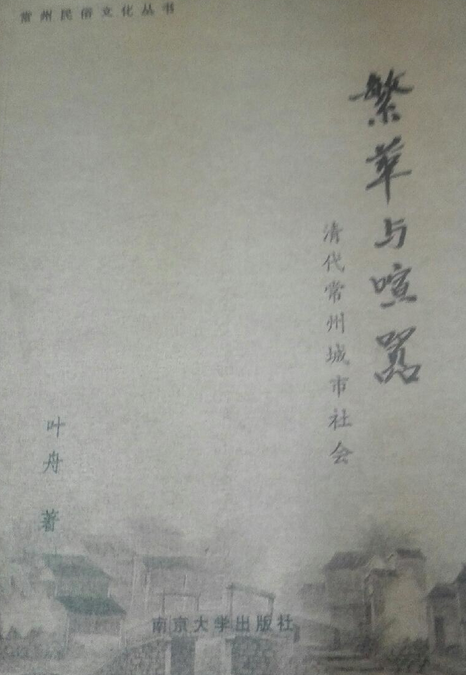 常州民俗文化丛书
繁华与喧嚣
清代常州城市社会
叶舟 著
南京大学出版社